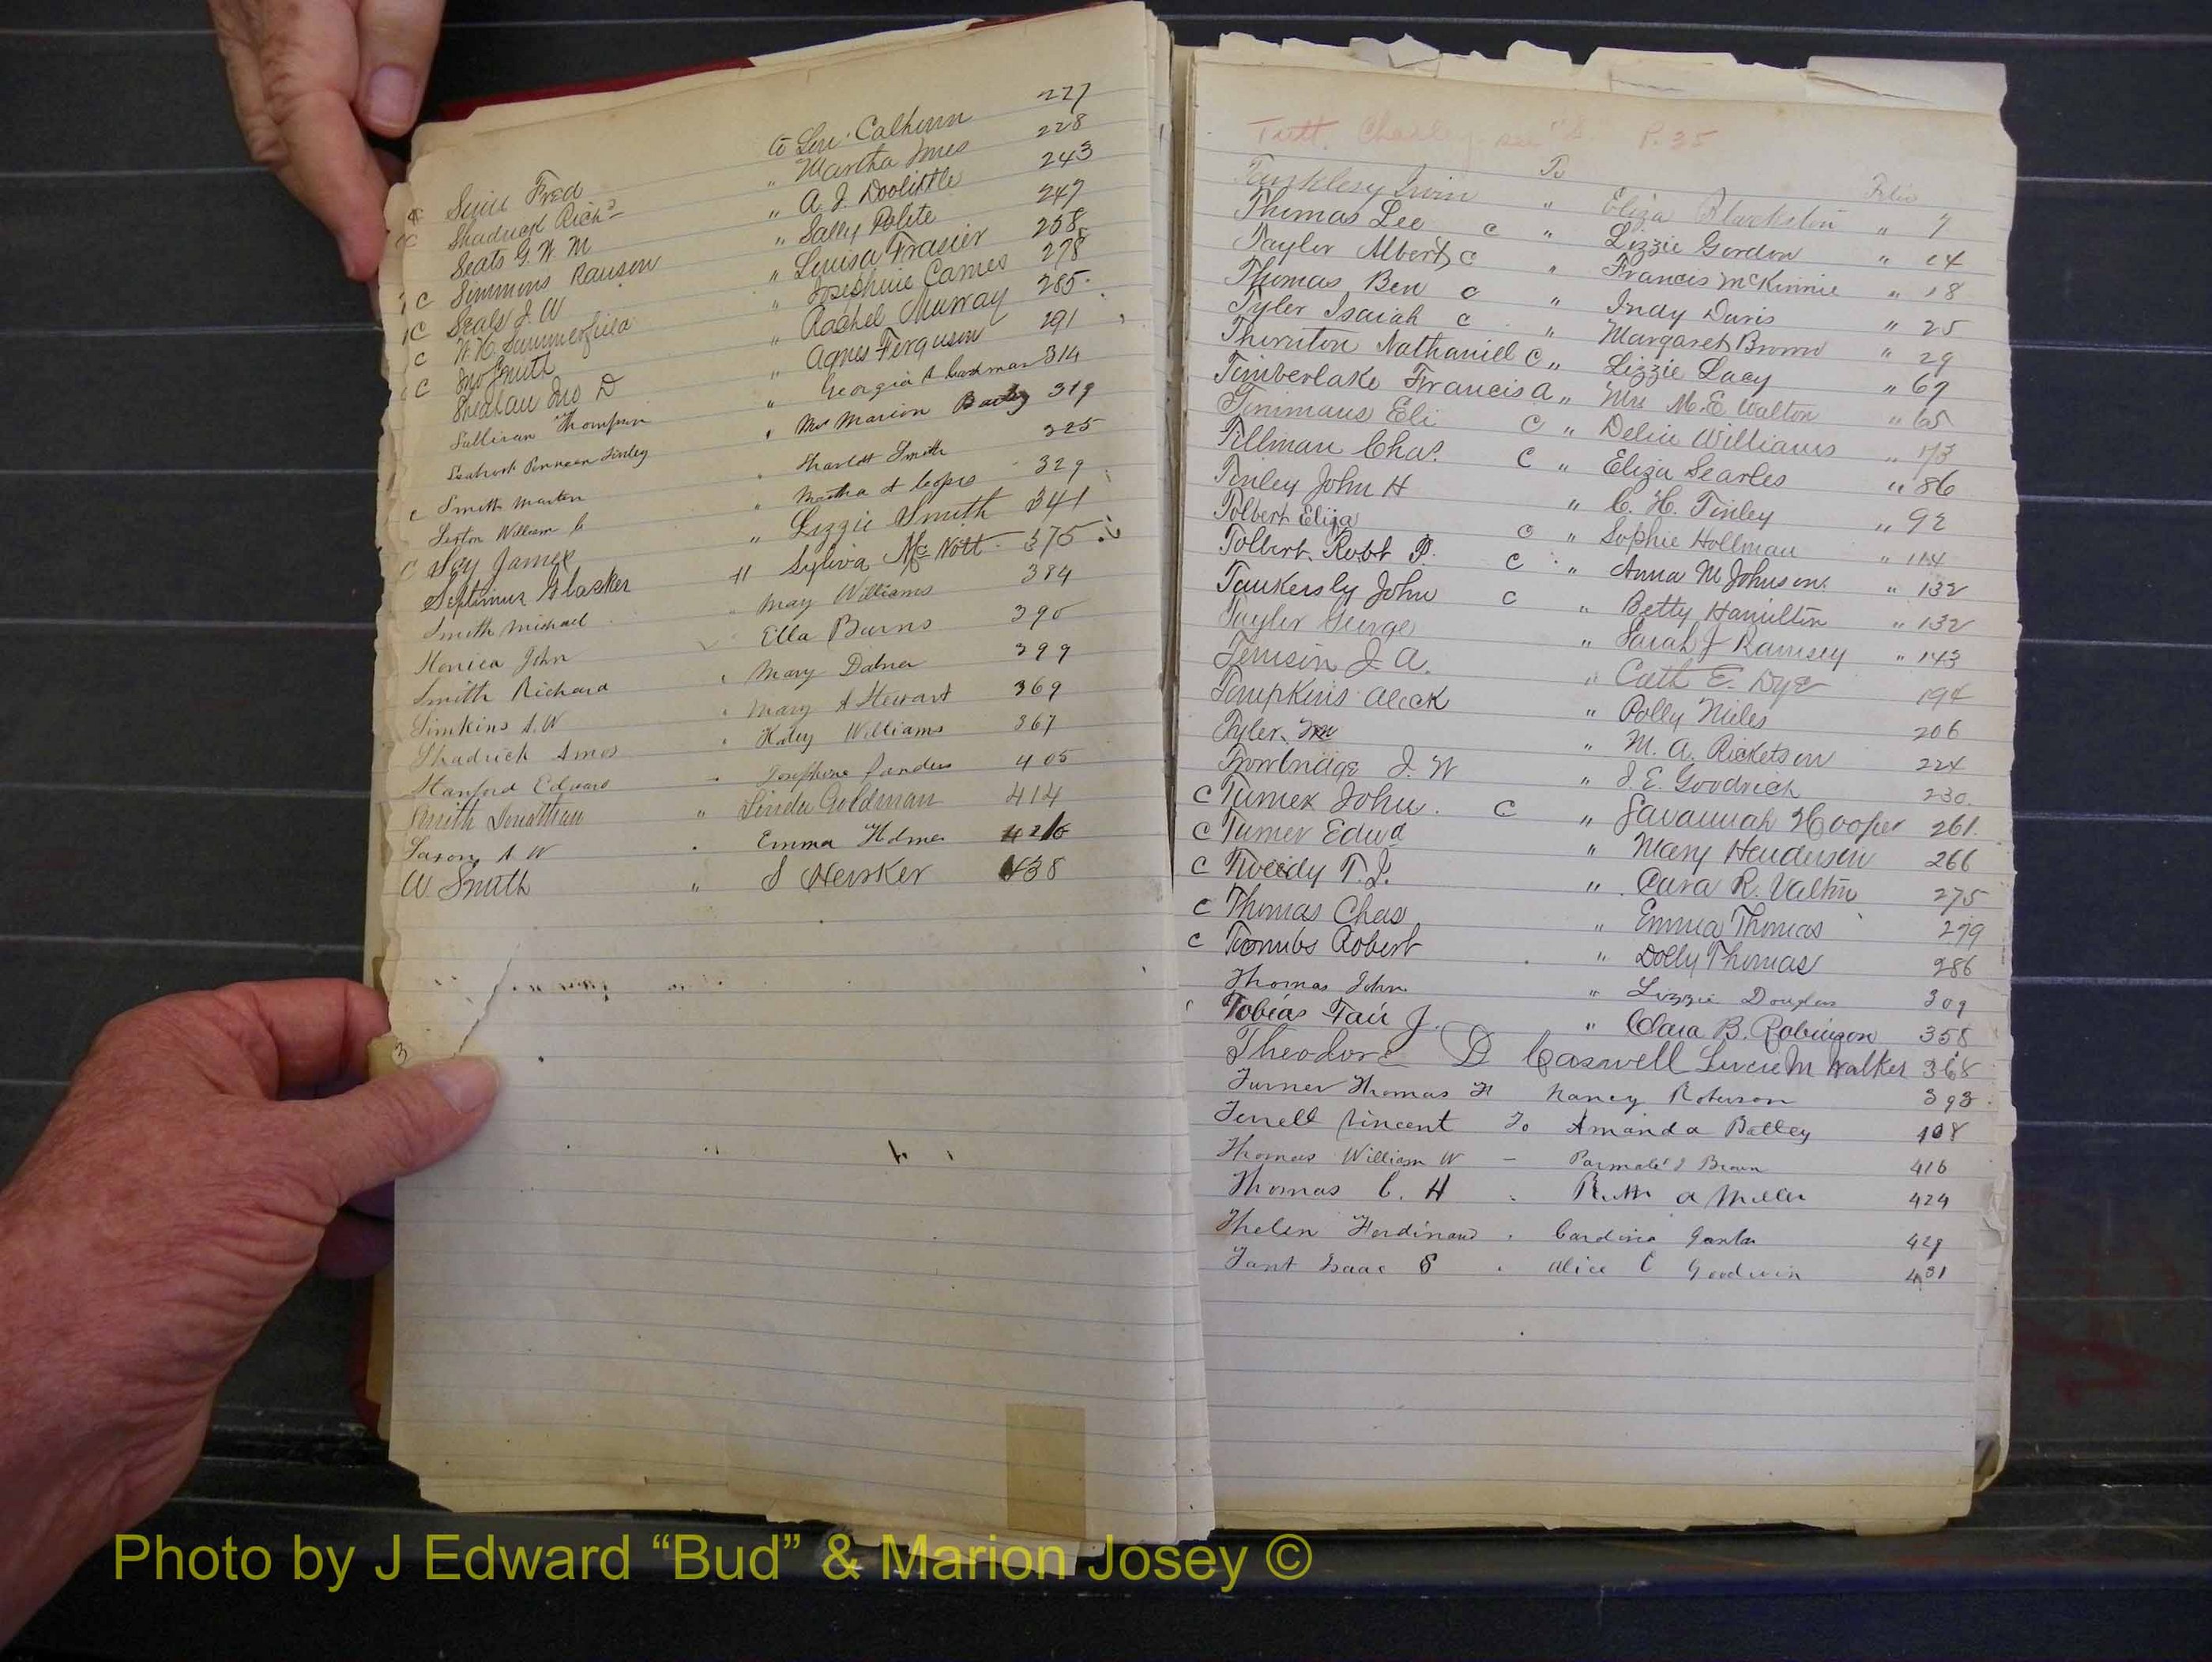 to Lou Calhoun 227
c Fred " Martha Jones 228
c Shadrick Rich'd " A. J. Doolittle 243
Seats G. W. M " Sally Polite 247
c Simmons Ranson " Louisa Frasier 258
c Seals J. W " Josephine Carnes 278
c W. H. Summerfield " Rachel Murray 285
c Jno Smith " Agnes Ferguson 291
Jno D " Georgia A 314
Sullivan Thompson " Mrs Marion 319
Seabrook Finley " Charlott Smith 325
c Smith Martin " Martha A 329
Sexton William C " Lizzie Smith 341
c James " Sylvia McNott 375
Septimus Glasker 384
Smith Michael " May Williams
Henica John Ella Burns 390
Smith Richard " Mary 399
Simkins A. W " Mary A Stewart 369
Shadrick Amos " Williams 367
Hanford Edward " Josephine 405
Smith Jonathan " Linda Goldman 414
Saxon A W " Emma Holmes
W. Smith " S Hersker 438
Tutt. Charley see "C" P. 35
To Folio
Tanklesy Irvin " Eliza Blackston " 7
Thomas Lee c " Lizzie Gordon " 14
Taylor Albert c " Francis McKinnie " 18
Thomas Ben c " Indy Davis " 25
Tyler Isaiah c " Margaret Brown " 29
Thornton Nathaniel c " Lizzie Lacy " 67
Timberlake Francis A " Mrs M. E. Walton " 65
Timmans Eli c " Delia Williams " 73
Tillman Chas. c " Eliza Searles " 86
Tinley John H " C. H. Tinley " 92
Tolbert Eliza c " Sophie Hollman " 114
Tolbert Robt P. c " Anna M Johnson " 132
Tankersly John c " Betty Hamilton " 132
Taylor George " Sarah J Ramsey " 143
J. A. " Cath E. Dye 194
Tompkins Aleck " Polly Niles 206
Tyler " M. A. Ricketson 224
Trowbridge J. W " J. E. Goodrich 230
c Turner John c " Savannah Hooper 261
c Turner Edwd " Mary Henderson 266
c Tweedy T. J. " Cara R. 275
c Thomas Chas " Emma Thomas 279
c Toombs Robert " Dolly Thomas 286
Thomas John " Lizzie Douglas 309
Tobias Fair J. " Clara B. Robinson 358
Theodore D Caswell Lucie M Walker 368
Turner Thomas H Nancy Roberson 393
Terrell Vincent To Amanda Battey 408
Thomas William W - Brown 416
Thomas C. H . Ruth A Miller 424
Thelen Ferdinand . 429
Tant Isaac S . Alice C Goodwin 431
3
Photo by J Edward “Bud” & Marion Josey ©